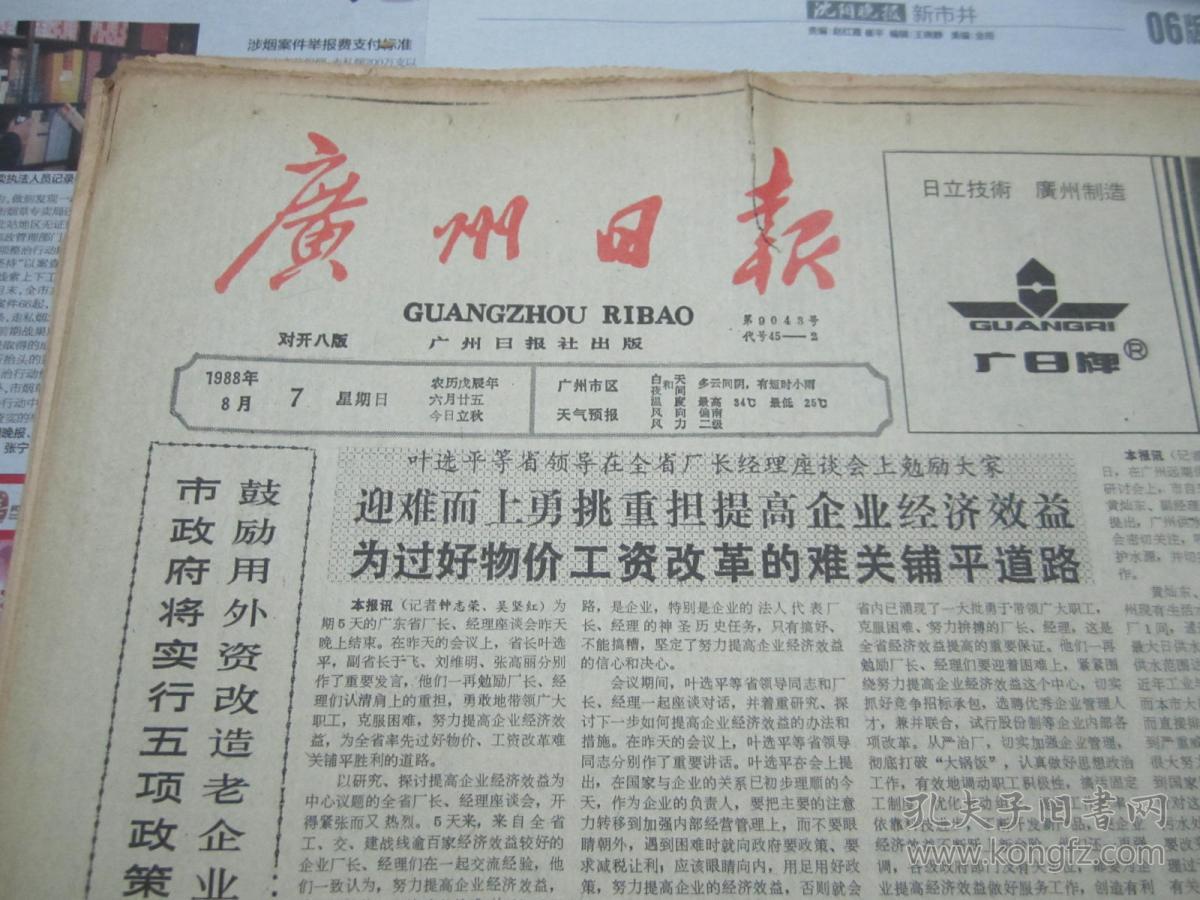 沈阳晚报 新市井
06版
涉烟案件举报费支付标准
廣州日报
GUANGZHOU RIBAO
对开八版
广州日报社出版
第9043号
代号45——2
日立技術 廣州制造
GUANGRI
广日牌®
1988年
8月
7
星期日
农历戊辰年
六月廿五
今日立秋
广州市区
天气预报
白天和夜间 多云间阴,有短时小雨
温度 最高 34℃ 最低 25℃
风向 偏南
风力 二级
鼓励用外资改造老企业
市政府将实行五项政策
叶选平等省领导在全省厂长经理座谈会上勉励大家
迎难而上勇挑重担提高企业经济效益
为过好物价工资改革的难关铺平道路
本报讯(记者钟志荣、吴坚红)为
期5天的广东省厂长、经理座谈会昨天
晚上结束。在昨天的会议上,省长叶选
平,副省长于飞、刘维明、张高丽分别
作了重要发言,他们一再勉励厂长、经
理们认清肩上的重担,勇敢地带领广大
职工,克服困难,努力提高企业经济效
益,为全省率先过好物价、工资改革难
关铺平胜利的道路。
以研究、探讨提高企业经济效益为
中心议题的全省厂长、经理座谈会,开
得紧张而又热烈。5天来,来自全省
工、交、建战线逾百家经济效益较好的
企业厂长、经理们在一起交流经验,他
们一致认为,努力提高企业经济效益,
路,是企业,特别是企业的法人代表厂
长、经理的神圣历史任务,只有搞好、
不能搞糟,坚定了努力提高企业经济效益
的信心和决心。
会议期间,叶选平等省领导同志和厂
长、经理一起座谈对话,并着重研究、探
讨下一步如何提高企业经济效益的办法和
措施。在昨天的会议上,叶选平等省领导
同志分别作了重要讲话。叶选平在会上提
出,在国家与企业的关系已初步理顺的今
天,作为企业的负责人,要把主要的注意
力转移到加强内部经营管理上,而不要眼
睛朝外,遇到困难时就向政府要政策、要
求减税让利;应该眼睛向内,用足用好政
策,努力提高企业的经济效益,否则就会
省内已涌现了一大批勇于带领广大职工,
克服困难、努力拚搏的厂长、经理,这是
全省经济效益提高的重要保证。他们一再
勉励厂长、经理们要迎着困难上,紧紧围
绕努力提高企业经济效益这个中心,切实
抓好竞争招标承包,选聘优秀企业管理人
才,兼并联合,试行股份制等企业内部各
项改革。从严治厂,切实加强企业管理,
彻底打破“大锅饭”,认真做好思想政治
工作,有效地调动职工积极性,搞活固定
业提高经济效益做好服务工作,创造有利
本报讯(记
日,在广州远期
研讨会上,市自
黄灿东、副经理
提出,广州供
会密切关注,
护水源,并切
作。
黄灿东、
州现有生活
厂1间,
最大日供水
供水范围
近年工业
而本市大
而直接
到严重
很大努力
到国家
孔夫子旧书网
www.kongfz.com